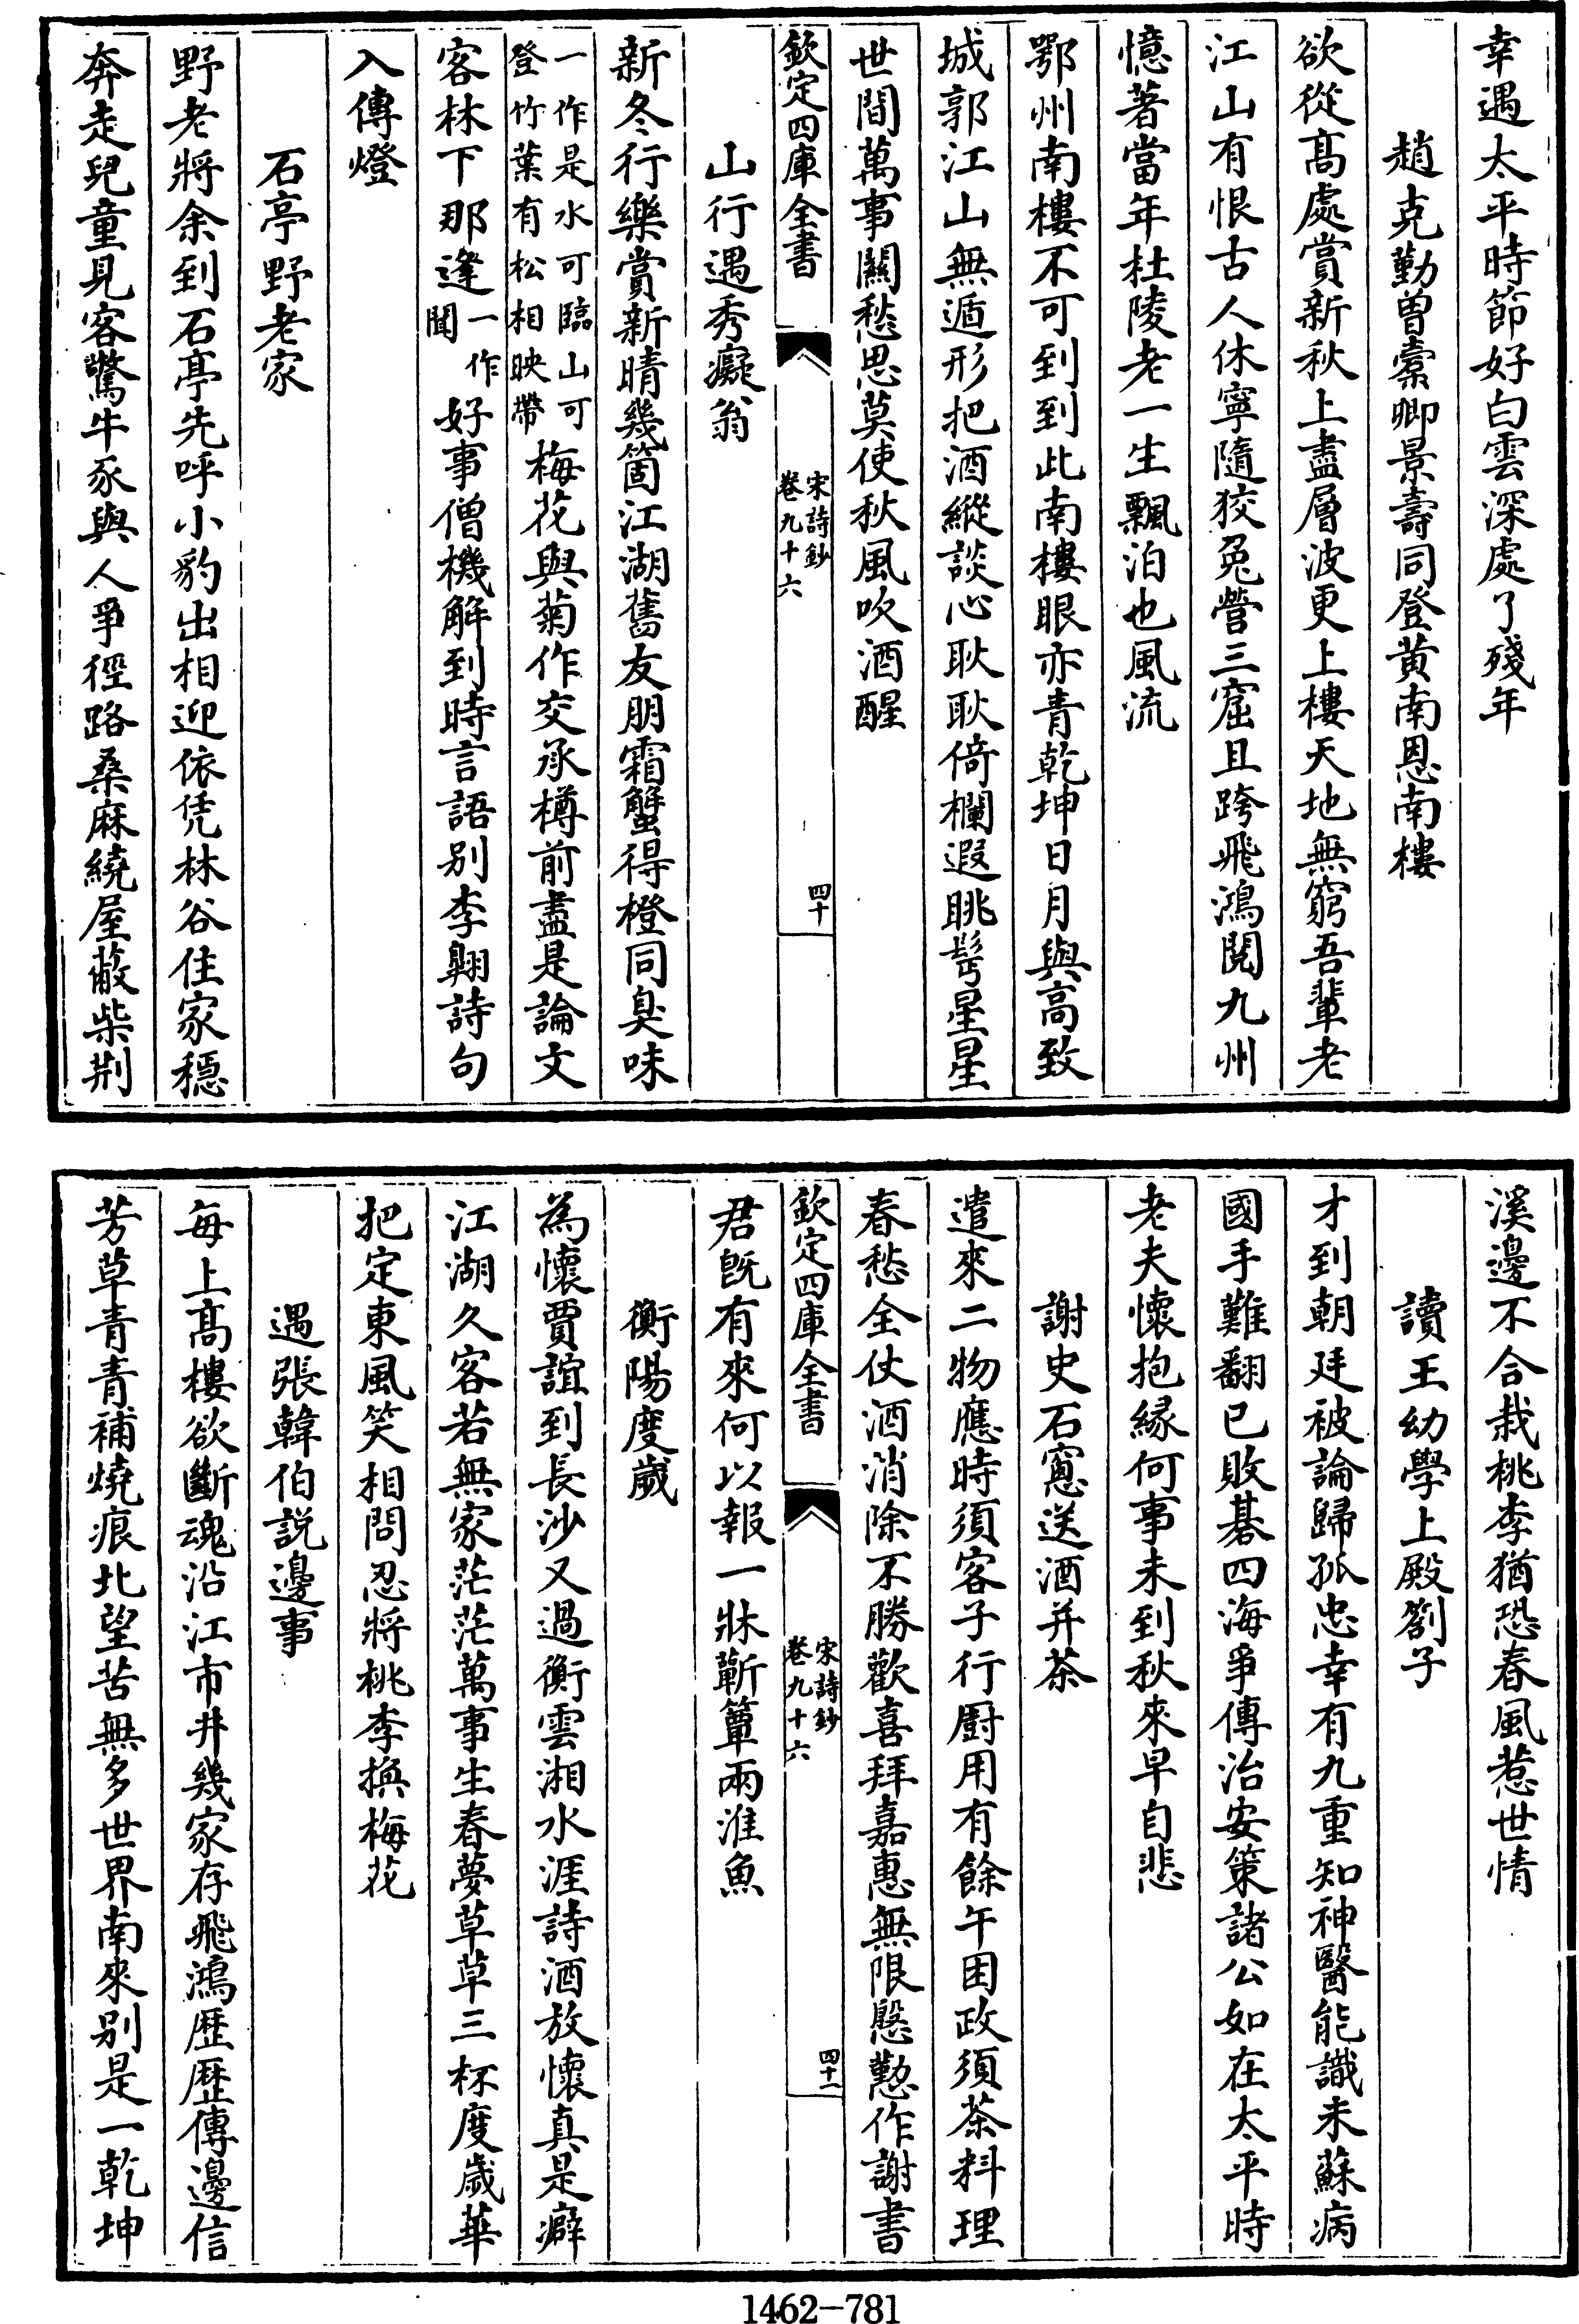 幸遇太平時節好白雲深處了殘年
趙克勤曾㯶卿景壽同登黄南恩南樓
欲從髙處賞新秋上盡層波更上樓天地無窮吾輩老
江山有恨古人休寧隨狡兔營三窟且跨飛鴻閲九州
憶著當年杜陵老一生飄泊也風流
鄂州南樓不可到到此南樓眼亦青乾坤日月與高致
城郭江山無遁形把酒縱談心耿耿倚欄遐眺髩星星
世間萬事關愁思莫使秋風吹酒醒
欽定四庫全書
宋詩鈔
卷九十六
四十
山行遇秀癡翁
新冬行樂賞新晴幾箇江湖舊友朋霜蟹得橙同臭味
一作是水可臨山可
登竹葉有松相映帶
梅花與菊作交承樽前盡是論文
客林下那逢
一作
聞
好事僧機解到時言語别李翺詩句
入傳燈
石亭野老家
野老將余到石亭先呼小豹出相迎依凭林谷住家穩
奔走兒童見客驚牛豕與人爭徑路桑麻繞屋蔽柴荆
溪邊不合栽桃李猶恐春風惹世情
讀王幼學上殿劄子
才到朝廷被論歸孤忠幸有九重知神醫能識未蘇病
國手難翻已敗碁四海爭傳治安策諸公如在太平時
老夫懷抱縁何事未到秋來早自悲
謝史石窻送酒并茶
遣來二物應時須客子行厨用有餘午困政須茶料理
春愁全仗酒消除不勝歡喜拜嘉惠無限慇懃作謝書
欽定四庫全書
宋詩鈔
卷九十六
四十一
君旣有來何以報一牀蘄簟兩淮魚
衡陽度嵗
為懷賈誼到長沙又過衡雲湘水涯詩酒放懷真是癖
江湖久客若無家茫茫萬事生春夢草草三杯度嵗華
把定東風笑相問忍將桃李換梅花
遇張韓伯説邊事
每上髙樓欲斷魂沿江市井幾家存飛鴻歴歴傳邊信
芳草青青補燒痕北望苦無多世界南來别是一乾坤
1462-781